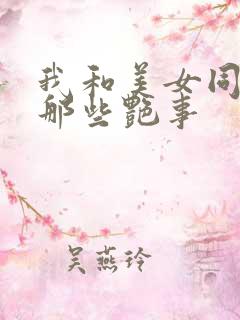 我和美女同
那些艷事
吴燕玲